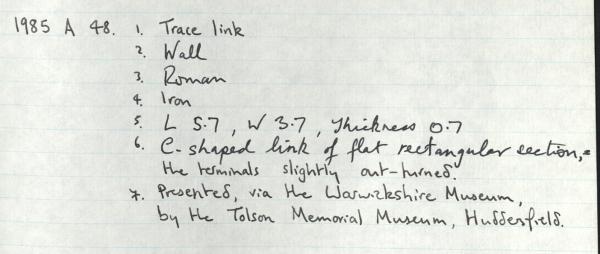 1985 A 48. 1. Trace link
2. Wall
3. Roman
4. Iron
5. L 5.7, W 3.7, Thickness 0.7
6. C-shaped link of flat rectangular section,
the terminals slightly out-turned.
7. Presented, via the Warwickshire Museum,
by the Tolson Memorial Museum, Huddersfield.